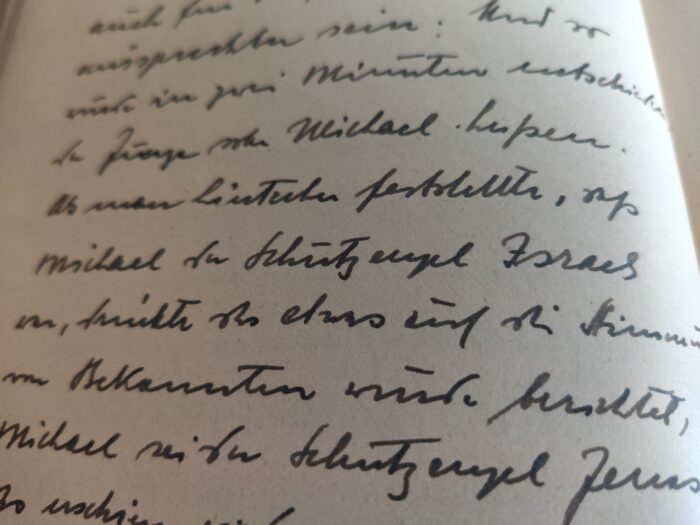 auch für
aussprechbar sein. Und so
wurde in zwei Minuten entschieden,
der Junge solle Michael heißen.
Als man hinterher feststellte, daß
Michael der Schutzengel Israels
war, drückte das etwas auf die Stimmun
von Bekannten wurde berichtet,
Michael sei der Schutzengel Jerus
Es erschien